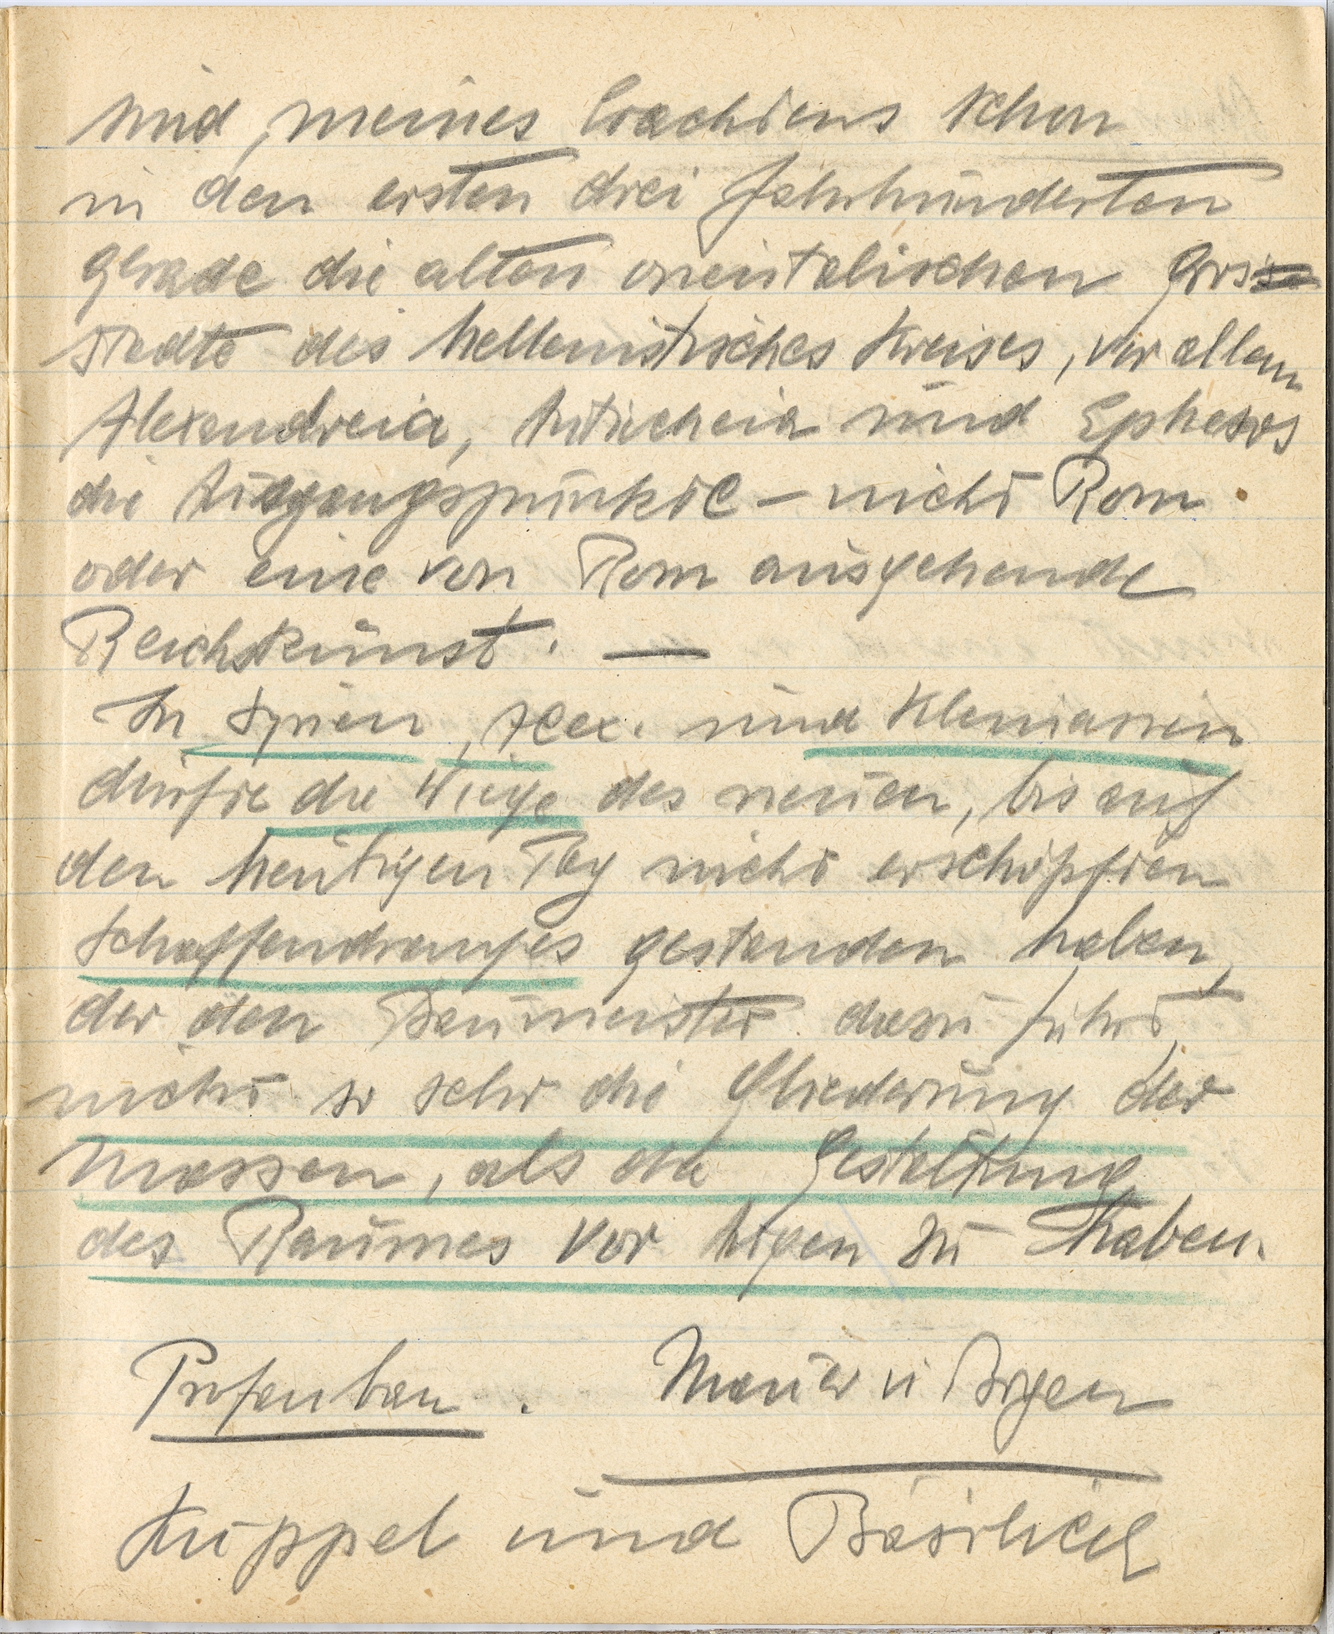 sind, meines Erachtens schon
in den ersten drei Jahrhunderten
gerade die alten orientalischen Gross
stedte des hellenistisches Kreises, vor allem
Alexandreia, Antiocheia und Ephesos
die Ausgangspunkte – nicht Rom
oder eine von Rom ausgehende
Reichskunst. —
In Syrien, Alex. und Kleinasien
dürfte die Wiege des neuen, bis auf
den heutigen Tag nicht erschöpften
Schaffendranges gestanden haben,
der den Baumeister dazu führt,
nicht so sehr die Gliederung der
Massen, als die Gestaltung
des Raumes vor Augen zu haben.
Profanbau. Mauer u Bogen
Kuppel und Basilica